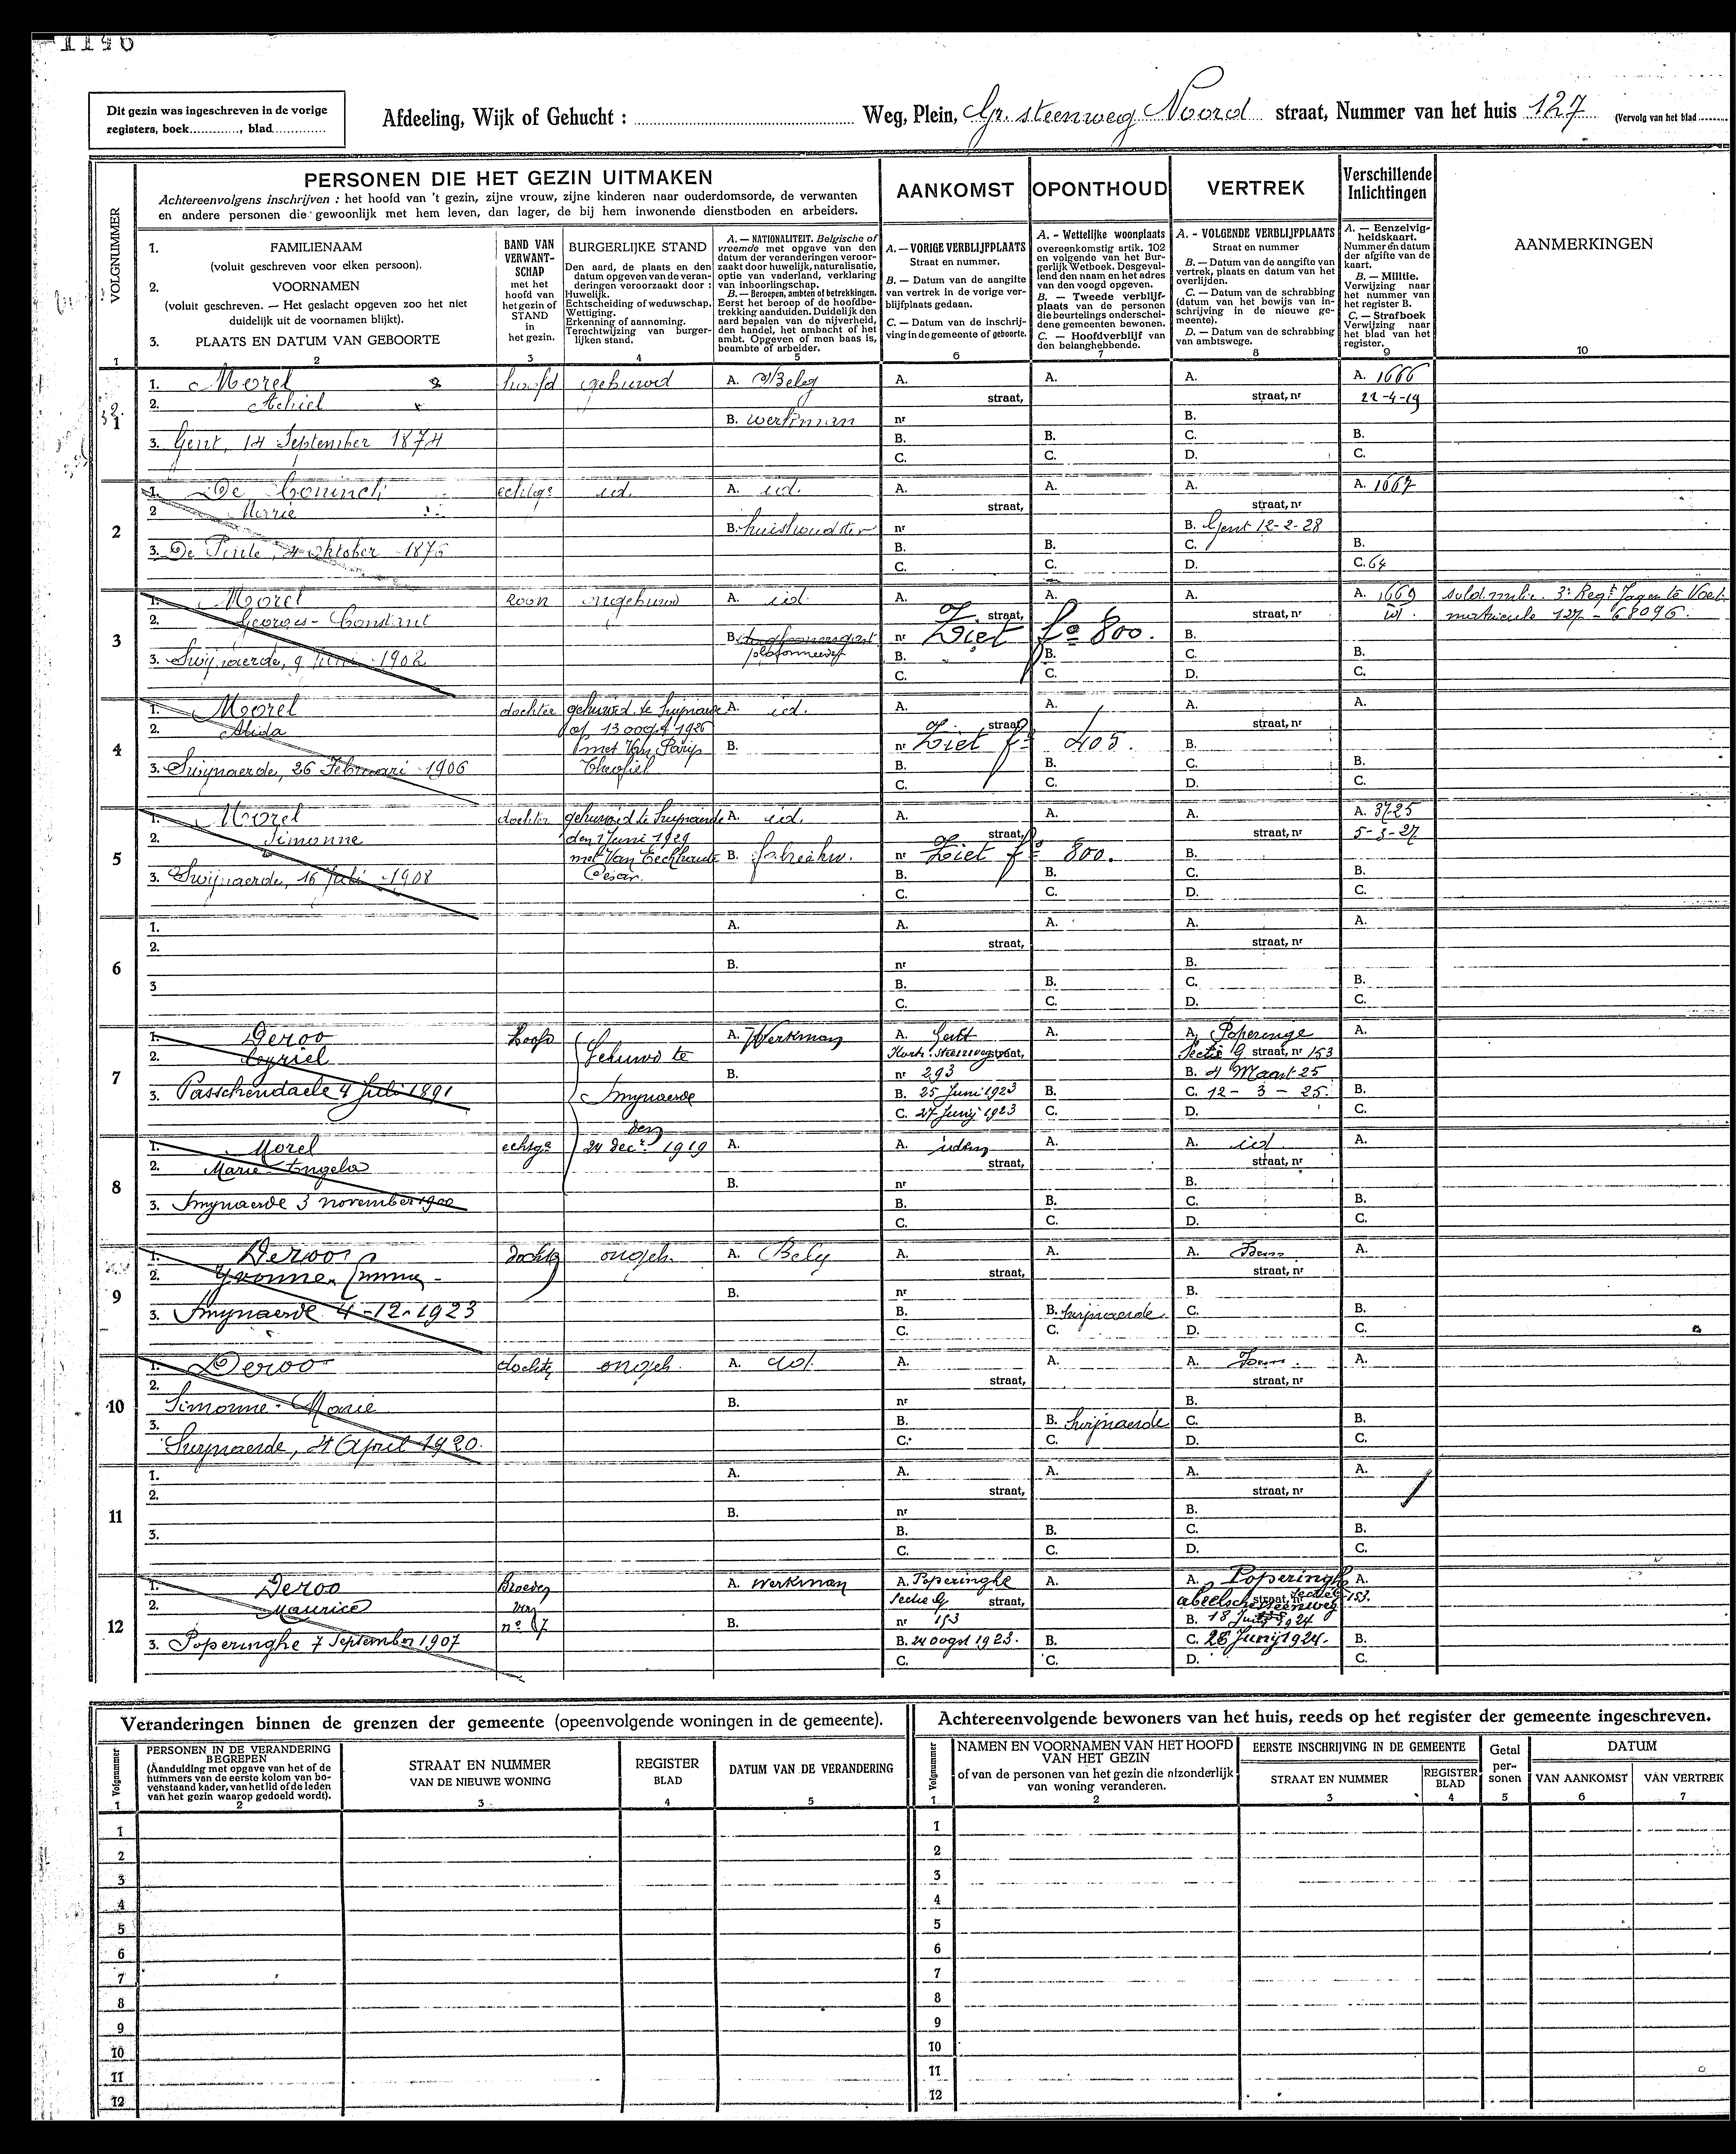 1146
Dit gezin was ingeschreven in de vorige
registers, boek............, blad..............
Afdeeling, Wijk of Gehucht : ............ Weg, Plein, Gr. steenweg Noord straat, Nummer van het huis 127 (Vervolg van het blad ........
VOLGNUMMER
PERSONEN DIE HET GEZIN UITMAKEN
Achtereenvolgens inschrijven : het hoofd van 't gezin, zijne vrouw, zijne kinderen naar ouderdomsorde, de verwanten
en andere personen die gewoonlijk met hem leven, dan lager, de bij hem inwonende dienstboden en arbeiders.
AANKOMST
OPONTHOUD
VERTREK
Verschillende
Inlichtingen
AANMERKINGEN
1. FAMILIENAAM
(voluit geschreven voor elken persoon).
2. VOORNAMEN
(voluit geschreven. — Het geslacht opgeven zoo het niet
duidelijk uit de voornamen blijkt).
3. PLAATS EN DATUM VAN GEBOORTE
BAND VAN
VERWANT-
SCHAP
met het
hoofd van
het gezin of
STAND
in
het gezin.
BURGERLIJKE STAND
Den aard, de plaats en den
datum opgeven van de veran-
deringen veroorzaakt door :
Huwelijk.
Echtscheiding of weduwschap.
Wettiging.
Erkenning of aanneming.
Terechtwijzing van burger-
lijken stand.
A. — NATIONALITEIT. Belgische of
vreemde met opgave van den
datum der veranderingen veroor-
zaakt door huwelijk, naturalisatie,
optie van vaderland, verklaring
van inboorlingschap.
B. — Beroepen, ambten of betrekkingen.
Eerst het beroep of de hoofdbe-
trekking aanduiden. Duidelijk den
aard bepalen van de nijverheid,
den handel, het ambacht of het
ambt. Opgeven of men baas is,
beambte of arbeider.
A. — VORIGE VERBLIJFPLAATS
Straat en nummer.
B. — Datum van de aangifte
van vertrek in de vorige ver-
blijfplaats gedaan.
C. — Datum van de inschrij-
ving in de gemeente of geboorte.
A. - Wettelijke woonplaats
overeenkomstig artik. 102
en volgende van het Bur-
gerlijk Wetboek. Desgeval-
lend den naam en het adres
van den voogd opgeven.
B. — Tweede verblijf-
plaats van de personen
die beurtelings onderschei-
dene gemeenten bewonen.
C. — Hoofdverblijf van
den belanghebbende.
A. - VOLGENDE VERBLIJFPLAATS
Straat en nummer
B. — Datum van de aangifte van
vertrek, plaats en datum van het
overlijden.
C. — Datum van de schrabbing
(datum van het bewijs van in-
schrijving in de nieuwe ge-
meente).
D. — Datum van de schrabbing
van ambtswege.
A. — Eenzelvig-
heidskaart.
Nummer en datum
der afgifte van de
kaart.
B. — Militie.
Verwijzing naar
het nummer van
het register B.
C. — Strafboek
Verwijzing naar
het blad van het
register.
1 2 3 4 5 6 7 8 9 10
1
1. Morel hoofd gehuwd A. Belg A. A. A. A. 1666
2. Achiel straat, straat, nr 22-4-19
B. werkman nr B.
3. Gent, 14 September 1874 B. B. C. B.
C. C. D. C.
2
1. De Coninck echtge id. A. id. A. A. A. A. 1667
2 Marie straat, straat, nr
B. huishoudster nr B. Gent 12-2-28
3. De Pinte, 4 oktober 1875 B. B. C. B.
C. C. D. C. 64
3
1. Morel zoon ongehuwd A. id. A. A. A. A. 1669 sold. milic. 3e Regt Jagers te Voet
2. Georges-Constant straat, straat, nr id. matricule 127-68096.
B. plafonneerder nr Ziet fo 800. B.
3. Swijnaerde, 9 Juni 1902 B. B. C. B.
C. C. D. C.
4
1. Morel dochter gehuwd te Swijnaerde A. id. A. A. A. A.
2. Alida op 13 oogst 1926 straat, straat, nr
met Van Parijs B. nr Ziet fo 405. B.
3. Swijnaerde, 26 Februari 1906 Theofiel B. B. C. B.
C. C. D. C.
5
1. Morel dochter gehuwd te Swijnaerde A. id. A. A. A. A. 3725
2. Simonne den 1 Juni 1929 straat, straat, nr 5-3-27
met Van Eeckhoute B. fabriekw. nr Ziet fo 800. B.
3. Swijnaerde, 16 Juli 1908 Cesar. B. B. C. B.
C. C. D. C.
6
1. A. A. A. A. A.
2. straat, straat, nr
B. nr B.
3 B. B. C. B.
C. C. D. C.
7
1. Deroo Hoofd A. Werkman A. Gent A. A. Poperinge A.
2. Cyriel Gehuwd te Kortr. Steenweg straat, Sectie G straat, nr 153
B. nr 293 B. 4 Maart 25
3. Passchendaele 4 Juli 1891 Swynaerde B. 25 Juni 1923 B. C. 12 - 3 - 25. B.
C. 27 Junij 1923 C. D. C.
den
8
1. Morel echtge 24 decr 1919 A. A. idem A. A. id A.
2. Marie Angela straat, straat, nr
B. nr B.
3. Swynaerde 3 november 1900 B. B. C. B.
C. C. D. C.
9
1. Deroo dochter ongeh. A. Belg A. A. A. A.
2. Yvonne Emma straat, straat, nr
B. nr B.
3. Swynaerde 4-12-1923 B. B. Swijnaerde C. B.
C. C. D. C.
10
1. Deroo dochter ongeh. A. id. A. A. A. A.
2. straat, straat, nr
Simonne-Marie B. nr B.
3. B. B. Swijnaerde C. B.
Swynaerde, 4 April 1920. C. C. D. C.
11
1. A. A. A. A. A.
2. straat, straat, nr
B. nr B.
3. B. B. C. B.
C. C. D. C.
12
1. Deroo Broeder A. werkman A. Poperinghe A. A. Poperinghe A.
2. Maurice van Sectie G straat, abeelsche steenweg straat, nr Sectie G 153.
no 7 B. nr 153 B. 18 Juni 1924
3. Poperinghe 7 September 1907 B. 24 oogst 1923. B. C. 26 Junij 1924. B.
C. C. D. C.
Veranderingen binnen de grenzen der gemeente (opeenvolgende woningen in de gemeente).
Volgnummer
PERSONEN IN DE VERANDERING
BEGREPEN
(Aanduiding met opgave van het of de
nummers van de eerste kolom van bo-
venstaand kader, van het lid of de leden
van het gezin waarop gedoeld wordt).
STRAAT EN NUMMER
VAN DE NIEUWE WONING
REGISTER
BLAD
DATUM VAN DE VERANDERING
1 2 3 4 5
1
2
3
4
5
6
7
8
9
10
11
12
Achtereenvolgende bewoners van het huis, reeds op het register der gemeente ingeschreven.
Volgnummer
NAMEN EN VOORNAMEN VAN HET HOOFD
VAN HET GEZIN
of van de personen van het gezin die afzonderlijk
van woning veranderen.
EERSTE INSCHRIJVING IN DE GEMEENTE
STRAAT EN NUMMER
REGISTER
BLAD
Getal
per-
sonen
DATUM
VAN AANKOMST
VAN VERTREK
1 2 3 4 5 6 7
1
2
3
4
5
6
7
8
9
10
11
12